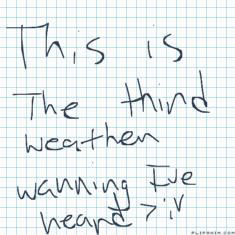 This is
The third
weather
warning I've
heard >:v
FLIPANIM.COM